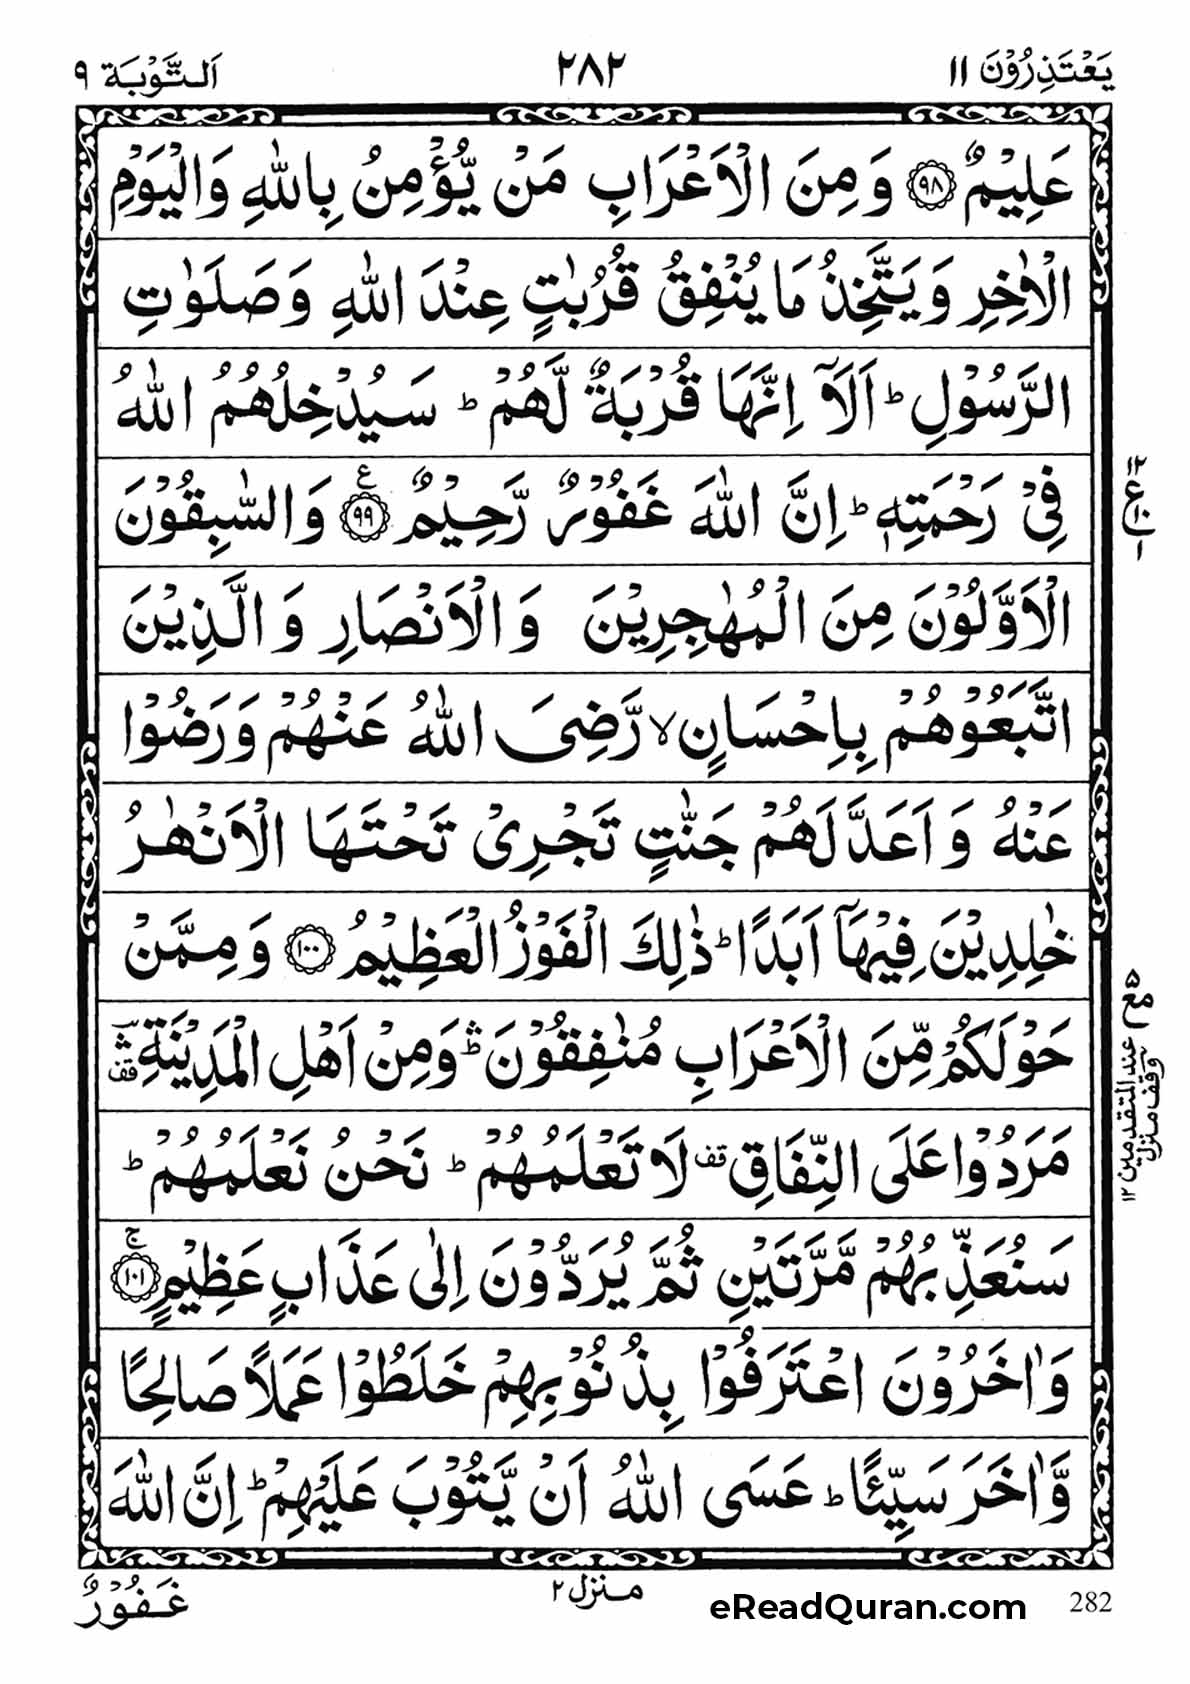 يَعْتَذِرُوْنَ ۱۱
۲۸۲
اَلتَّوْبَة ۹
عَلِيْمٌ ﴿۹۸﴾ وَمِنَ الْاَعْرَابِ مَنْ يُّؤْمِنُ بِاللّٰهِ وَالْيَوْمِ
الْاٰخِرِ وَيَتَّخِذُ مَا يُنْفِقُ قُرُبٰتٍ عِنْدَ اللّٰهِ وَصَلَوٰتِ
الرَّسُوْلِ ؕ اَلَاۤ اِنَّهَا قُرْبَةٌ لَّهُمْ ؕ سَيُدْخِلُهُمُ اللّٰهُ
فِيْ رَحْمَتِهٖ ؕ اِنَّ اللّٰهَ غَفُوْرٌ رَّحِيْمٌ ﴿۹۹﴾ ع وَالسّٰبِقُوْنَ
الْاَوَّلُوْنَ مِنَ الْمُهٰجِرِيْنَ وَالْاَنْصَارِ وَالَّذِيْنَ
اتَّبَعُوْهُمْ بِاِحْسَانٍ ۙ رَّضِىَ اللّٰهُ عَنْهُمْ وَرَضُوْا
عَنْهُ وَاَعَدَّ لَهُمْ جَنّٰتٍ تَجْرِىْ تَحْتَهَا الْاَنْهٰرُ
خٰلِدِيْنَ فِيْهَاۤ اَبَدًا ؕ ذٰلِكَ الْفَوْزُ الْعَظِيْمُ ﴿۱۰۰﴾ وَمِمَّنْ
حَوْلَكُمْ مِّنَ الْاَعْرَابِ مُنٰفِقُوْنَ ۛؕ وَمِنْ اَهْلِ الْمَدِيْنَةِ ۛ قف
مَرَدُوْا عَلَى النِّفَاقِ قف لَا تَعْلَمُهُمْ ؕ نَحْنُ نَعْلَمُهُمْ ؕ
سَنُعَذِّبُهُمْ مَّرَّتَيْنِ ثُمَّ يُرَدُّوْنَ اِلٰى عَذَابٍ عَظِيْمٍ ﴿۱۰۱﴾ ۚ
وَاٰخَرُوْنَ اعْتَرَفُوْا بِذُنُوْبِهِمْ خَلَطُوْا عَمَلًا صَالِحًا
وَّاٰخَرَ سَيِّئًا ؕ عَسَى اللّٰهُ اَنْ يَّتُوْبَ عَلَيْهِمْ ؕ اِنَّ اللّٰهَ
۱۲
ع
۱
مع ۵
عند المتقدمين ۱۲
وقف منزل
غَفُوْرٌ
منزل ۲
eReadQuran.com
282